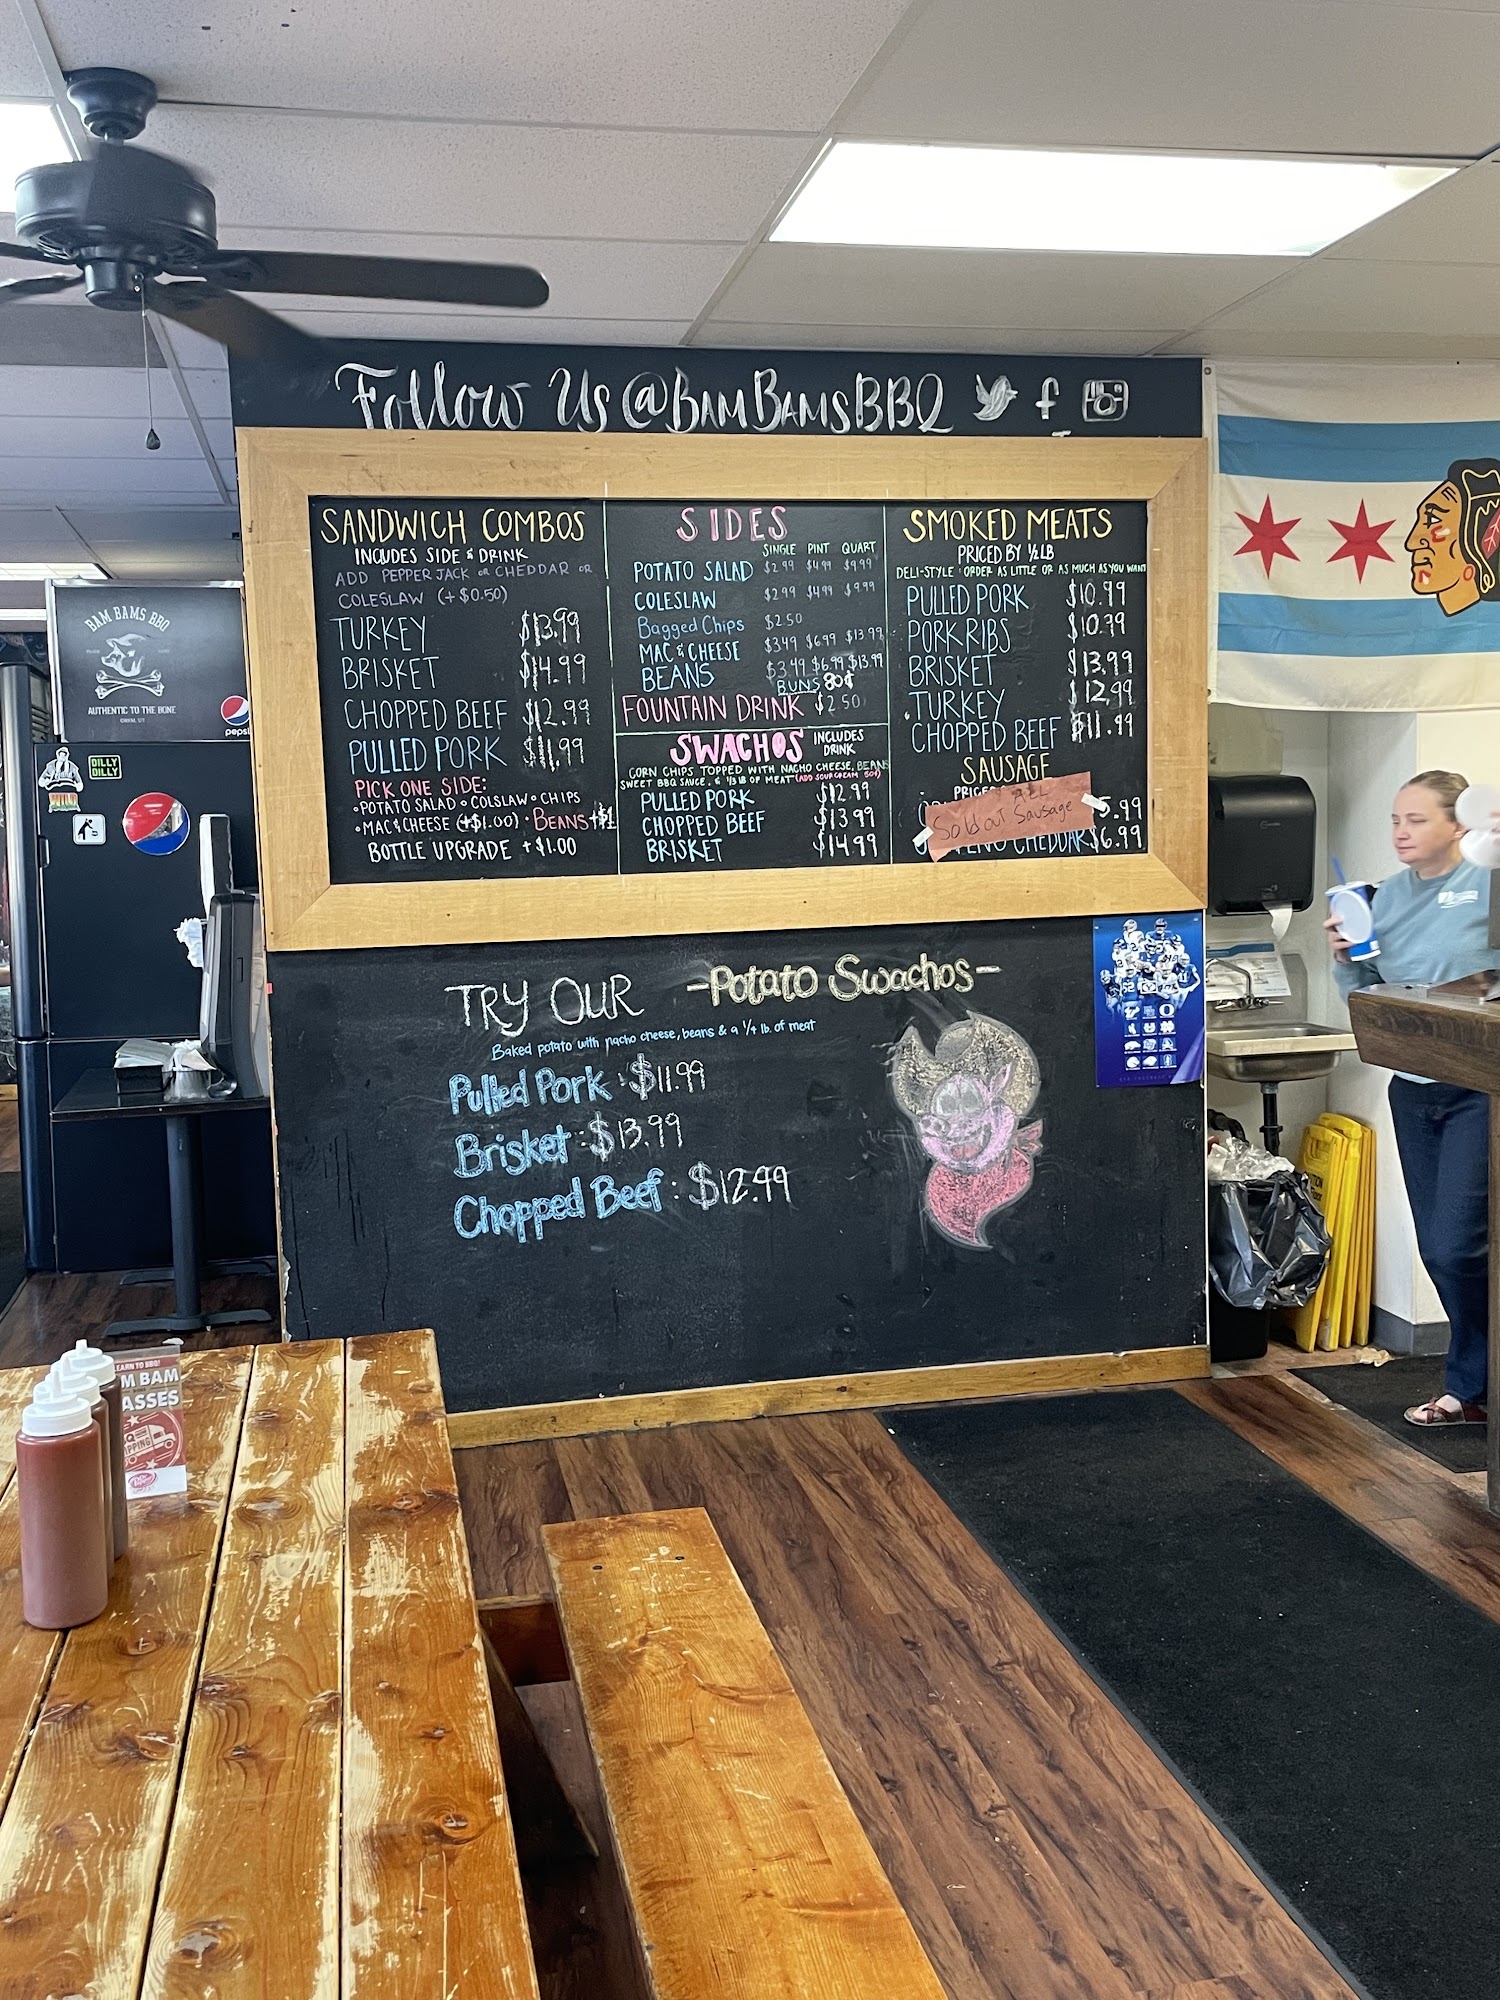 Follow Us @BamBamsBBQ
SANDWICH COMBOS
INCLUDES SIDE & DRINK
ADD PEPPER JACK OR CHEDDAR OR
COLESLAW (+$0.50)
TURKEY $13.99
BRISKET $14.99
CHOPPED BEEF $12.99
PULLED PORK $11.99
PICK ONE SIDE:
•POTATO SALAD •COLSLAW •CHIPS
•MAC & CHEESE (+$1.00) •BEANS +$1
BOTTLE UPGRADE +$1.00
SIDES
SINGLE PINT QUART
POTATO SALAD $2.99 $4.99 $9.99
COLESLAW $2.99 $4.99 $9.99
Bagged Chips $2.50
MAC & CHEESE $3.49 $6.99 $13.99
BEANS $3.49 $6.99 $13.99
BUNS 80¢
FOUNTAIN DRINK $2.50
SWACHOS INCLUDES
DRINK
CORN CHIPS TOPPED WITH NACHO CHEESE, BEANS
SWEET BBQ SAUCE, & 1/3 LB OF MEAT (ADD SOUR CREAM 50¢)
PULLED PORK $12.99
CHOPPED BEEF $13.99
BRISKET $14.99
SMOKED MEATS
PRICED BY ½ LB
DELI-STYLE ORDER AS LITTLE OR AS MUCH AS YOU WANT
PULLED PORK $10.99
PORK RIBS $10.79
BRISKET $13.99
TURKEY $12.99
CHOPPED BEEF $11.99
SAUSAGE
ALL
Sold out Sausage
5.99
CHEDDAR $6.99
TRY OUR -Potato Swachos-
Baked potato with nacho cheese, beans & a 1/4 lb. of meat
Pulled Pork: $11.99
Brisket: $13.99
Chopped Beef: $12.99
BAM BAMS BBQ
AUTHENTIC TO THE BONE
OREM, UT
pepsi
DILLY
DILLY
LEARN TO BBQ!
M BAM
ASSES
IPPING